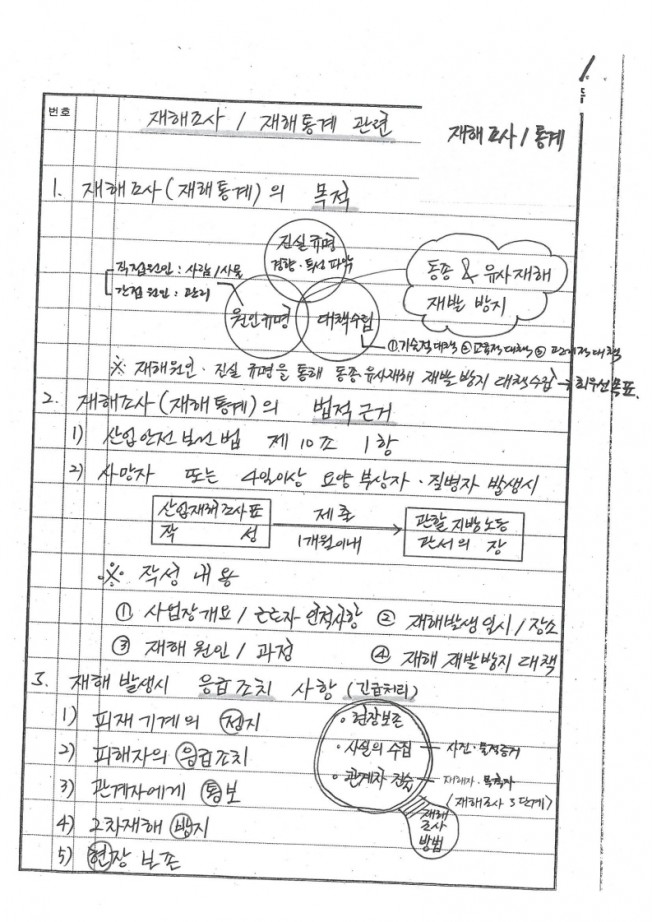 번호
재해조사 / 재해통계 관련
재해조사 / 통계
1. 재해조사(재해통계)의 목적
진실규명
경향·특성 파악
직접원인 : 사람/사물
간접원인 : 관리
원인규명
대책수립
동종 & 유사재해
재발 방지
①기술적대책 ②교육적대책 ③관리적대책
※ 재해원인·진실 규명을 통해 동종유사재해 재발방지 대책수립 → 최우선목표.
2. 재해조사(재해통계)의 법적근거
1) 산업안전보건법 제10조 1항
2) 사망자 또는 4일이상 요양 부상자·질병자 발생시
산업재해조사표
작 성
제출
1개월이내
관할지방노동
관서의 장
※ 작성내용
① 사업장개요 / 근로자 인적사항 ② 재해발생일시 / 장소
③ 재해원인 / 과정 ④ 재해재발방지대책
3. 재해발생시 응급조치 사항 (긴급처리)
1) 피재기계의 정지
2) 피해자의 응급조치
3) 관계자에게 통보
4) 2차재해 방지
5) 현장 보존
· 현장보존
· 사실의 수집 — 사진·물적증거
· 관계자 진술 — 재해자·목격자
〈재해조사 3단계〉
재해
조사
방법